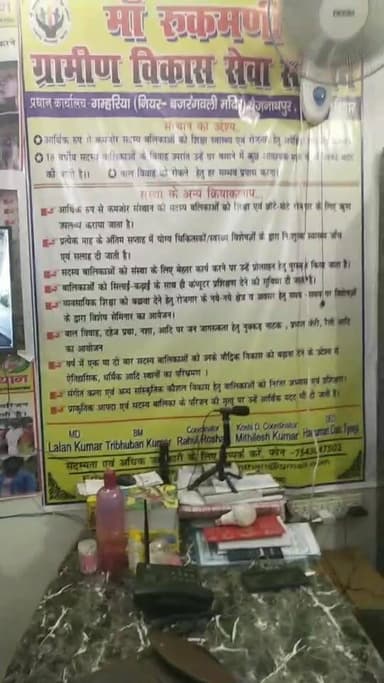 माँ रुकमणी
ग्रामीण विकास सेवा
प्रधान कार्यालय- गम्हरिया (नियर- बजरंगवली
संस्था का उद्देश्य
आर्थिक रुप से कमजोर सदस्य बालिकाओं को शिक्षा स्वास्थ्य एवं रोजगार हेतु
18 वर्षीय सदस्य बालिकाओं के विवाह उपरांत उन्हें घर बसाने में कुछ आवश्यक
की जाती है।। बाल विवाह को रोकने हेतु हर सम्भव प्रयास करना।
संस्था के अन्य क्रियाकलाप...
आर्थिक रुप से कमजोर संस्थान की सदस्य बालिकाओं को शिक्षा एवं छोटे-मोटे रोजगार के लिए ऋण
उपलब्ध कराया जाता है।
प्रत्येक माह के अंतिम सप्ताह में योग्य चिकित्सकों/स्वास्थ्य विशेषज्ञों के द्वारा निःशुल्क स्वास्थ्य जाँच
एवं सलाह दी जाती है।
सदस्य बालिकाओं को संस्था के लिए बेहतर कार्य करने पर उन्हें प्रोत्साहन हेतु पुरस्कृत किया जाता है।
बालिकाओं को सिलाई-कढ़ाई के साथ ही कंप्यूटर प्रशिक्षण देने की सुविधा दी जाती है।
व्यवसायिक शिक्षा को बढ़ावा देने हेतु रोजगार के नये-नये क्षेत्र व अवसर हेतु समय - समय पर विशेषज्ञों
के द्वारा विशेष सेमिनार का आयोजन।
बाल विवाह, दहेज प्रथा, नशा, आदि पर जन जागरुकता हेतु नुक्कड़ नाटक, प्रभात फेरी, रैली आदि
का आयोजन
वर्ष में एक या दो बार सदस्य बालिकाओं को उनके बौद्धिक विकास को बढ़ावा देने के उद्देश्य से
ऐतिहासिक, धार्मिक आदि स्थानों का परिभ्रमण ।
संगीत कला एवं अन्य सांस्कृतिक कौशल विकास हेतु बालिकाओं को निरंतर अभ्यास एवं प्रशिक्षण।
प्राकृतिक आपदा एवं सदस्य बालिका के परिजन की मृत्यु पर उन्हें आर्थिक मदद भी दी जाती है।
MD BM Coordinator Koshi D. Coordinator
Lalan Kumar Tribhuban Kumar Rahul Roshan Mithilesh Kumar Hanuman Das Tyagi
सदस्यता एवं अधिक जानकारी के लिए सम्पर्क करें, फोन